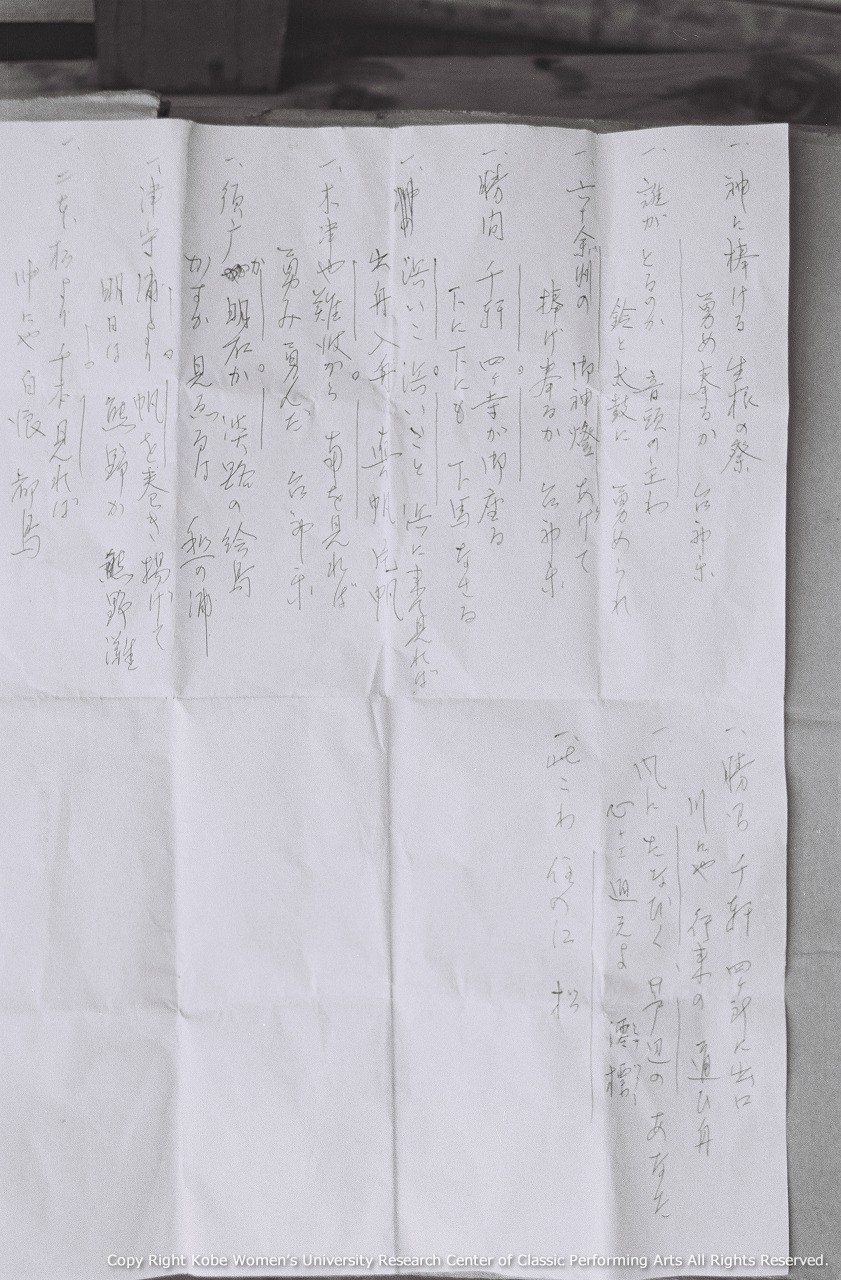 一、神に捧げる 生根の祭
勇め奉るか 台神楽
一、誰がとるのか 音頭の主わ
鈴と太鼓に 勇められ
一、六十余州の 御神燈 あげて
捧げ奉るか 台神楽
一、勝間 千軒 四ヶ寺が御座る
下に下にも 下馬なさる
一、 浜いこ 浜いこと 浜に来て見れば
出舟入舟 真帆片帆
一、木津や難波から 南を見れば
勇み勇んだ 台神楽
一、須广か 明石か 淡路の絵島
かすか 見ゆるは 和の浦
一、津守浦より 帆を巻き揚げて
明日は 熊野か 熊野灘
一、二本松より 千本見れば
沖にや白帆 都鳥
一、勝間 千軒 四ヶ所に出口
川にや 行来の 通ひ舟
一、風に たなびく 岸辺の あなた
心 通えよ 澪標
一、此こわ 住の江 松
Copy Right Kobe Women's University Research Center of Classic Performing Arts All Rights Reserved.